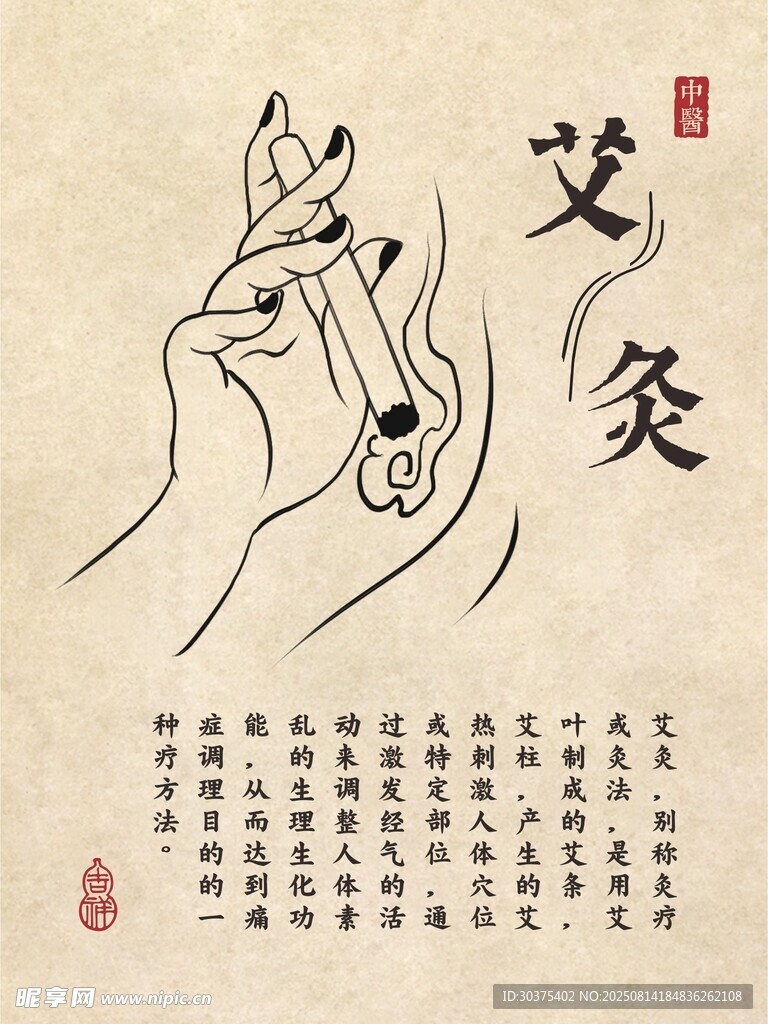 中醫
艾
灸
艾灸，别称灸疗
或灸法，是用艾
叶制成的艾条，
艾柱，产生的艾
热刺激人体穴位
或特定部位，通
过激发经气的活
动来调整人体素
乱的生理生化功
能，从而达到痛
症调理目的的一
种疗方法。
吉祥
昵享网 www.nipic.cn
ID:30375402 NO:20250814184836262108